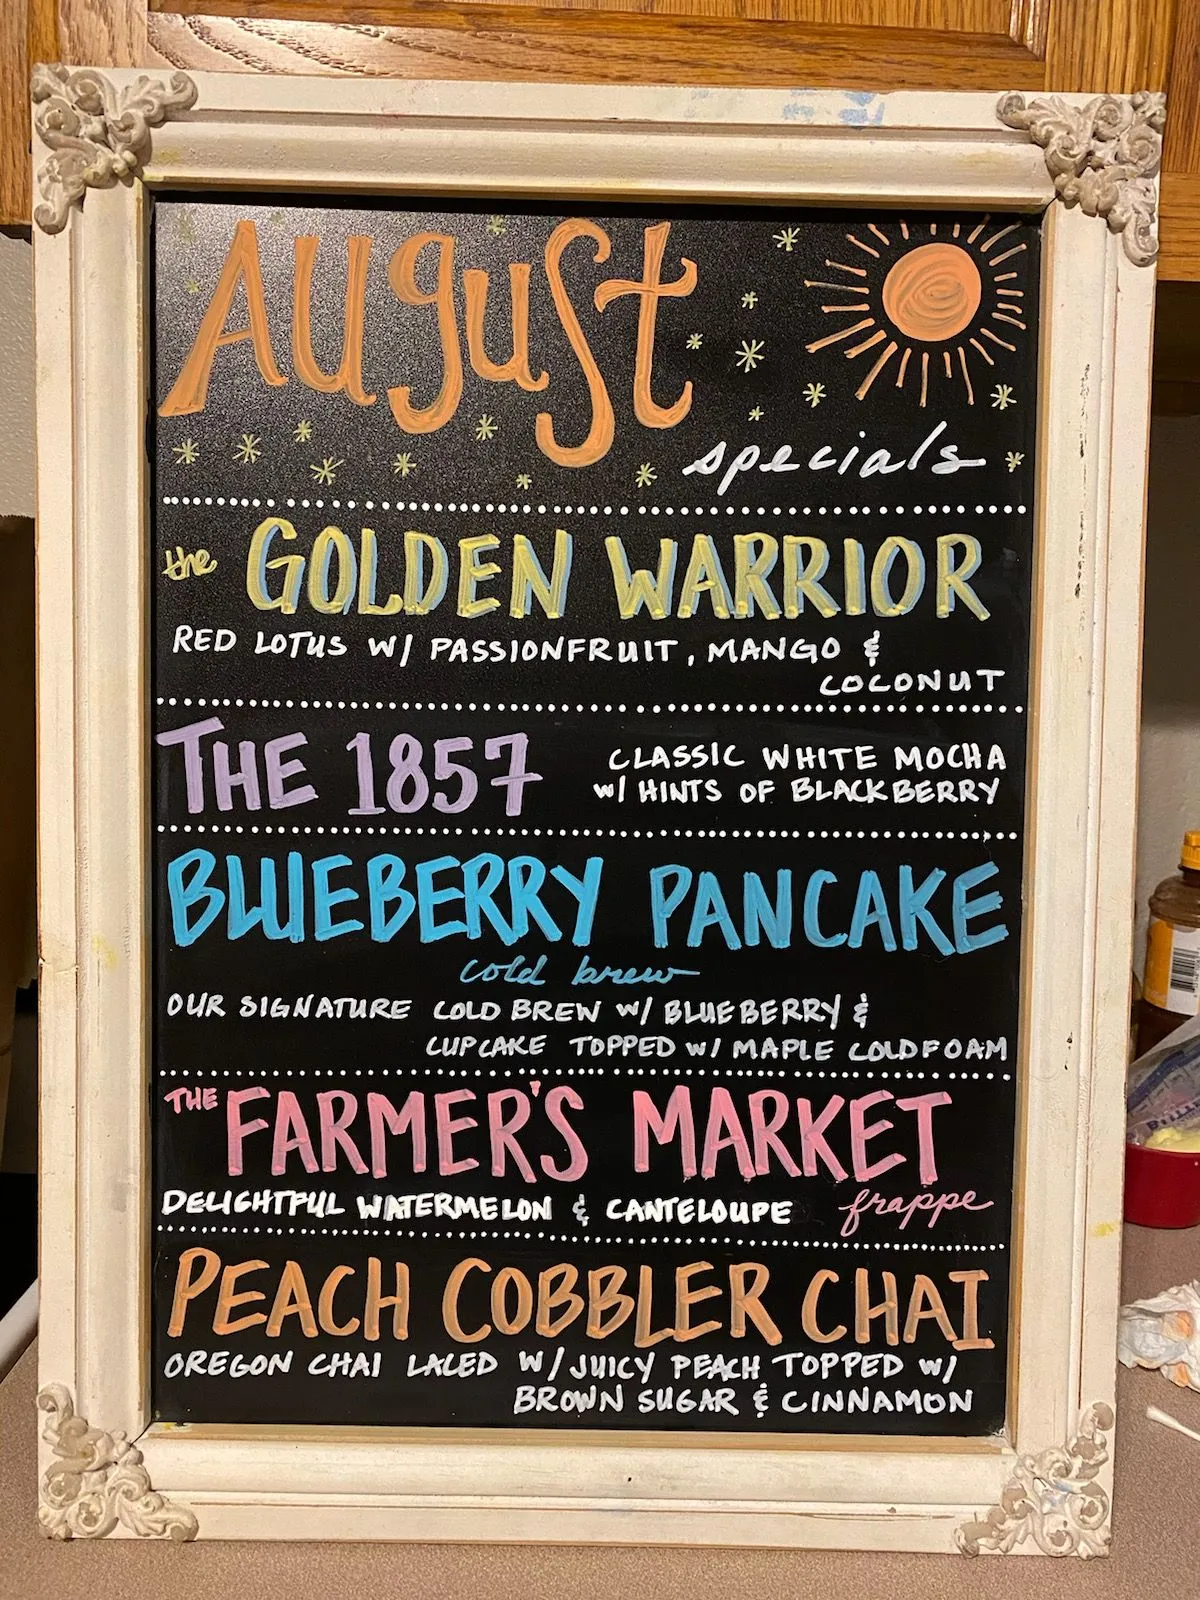 August
specials
the GOLDEN WARRIOR
RED LOTUS W/ PASSIONFRUIT, MANGO &
COCONUT
THE 1857
CLASSIC WHITE MOCHA
W/ HINTS OF BLACKBERRY
BLUEBERRY PANCAKE
cold brew
OUR SIGNATURE COLD BREW W/ BLUEBERRY &
CUPCAKE TOPPED W/ MAPLE COLDFOAM
THE FARMER'S MARKET
DELIGHTFUL WATERMELON & CANTELOUPE frappe
PEACH COBBLER CHAI
OREGON CHAI LACED W/ JUICY PEACH TOPPED W/
BROWN SUGAR & CINNAMON